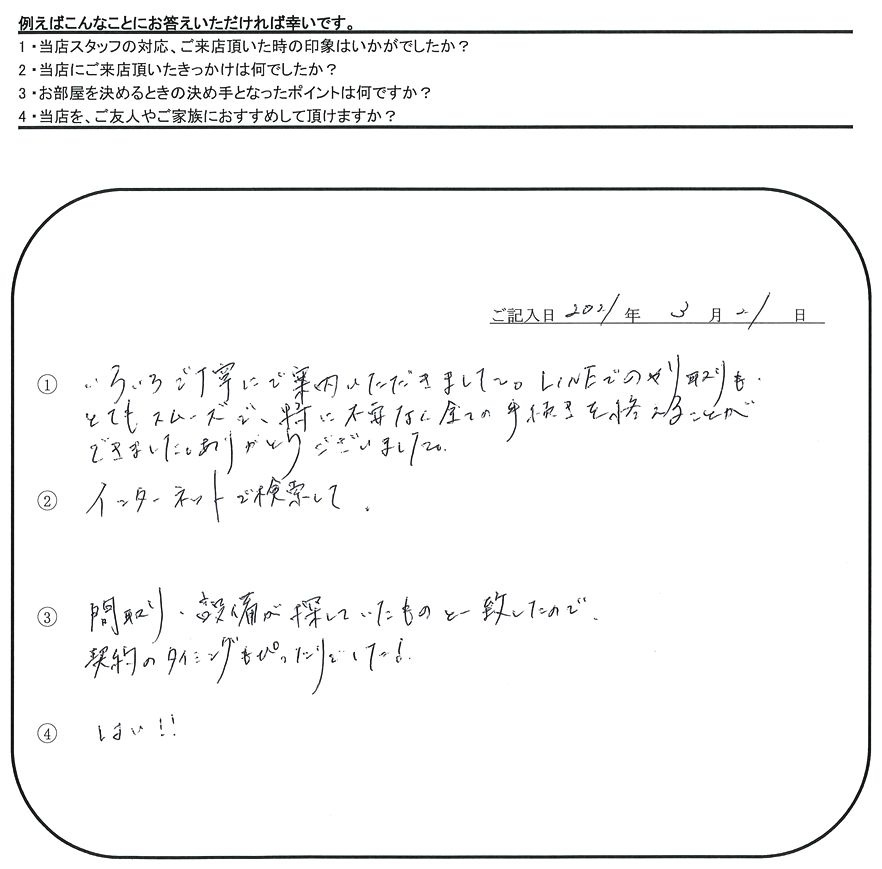 例えばこんなことにお答えいただければ幸いです。
1・当店スタッフの対応、ご来店頂いた時の印象はいかがでしたか？
2・当店にご来店頂いたきっかけは何でしたか？
3・お部屋を決めるときの決め手となったポイントは何ですか？
4・当店を、ご友人やご家族におすすめして頂けますか？
ご記入日 2021 年 3 月 21 日
① いろいろご丁寧にご案内いただきました。LINEでのやり取りも
とてもスムーズで、特に不安なく全ての手続きを終えることが
できました。ありがとうございました。
② インターネットで検索して。
③ 間取り・設備が探していたものと一致したので。
契約のタイミングもぴったりでした！
④ はい！！